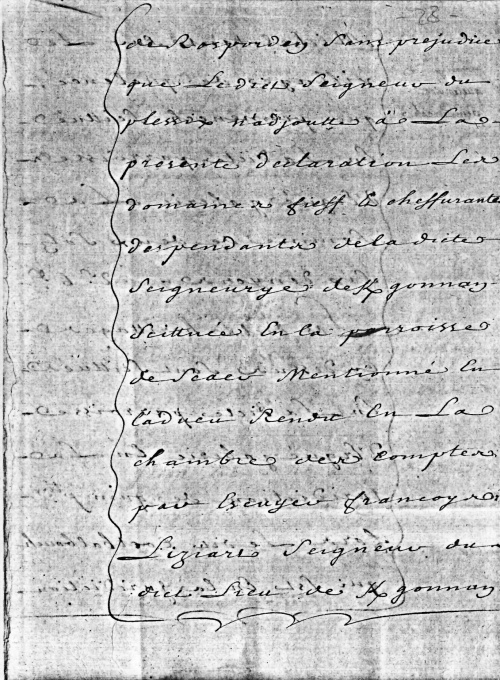 - 23 -
de Rosporden Sans prejudice
que Le dict Seigneur du
plessix n'adjoutte à La
presente declaration Les
domaines fieff & cheffurante
despendants de la dicte
Seigneurye de K gonnan
Scittuée En la parroisse
de Scaer Mentionné En
l'adveu Rendu En La
chambre des Comptes
par Escuyer francoys
Liziart Seigneur du
dict Lieu de K gonnan